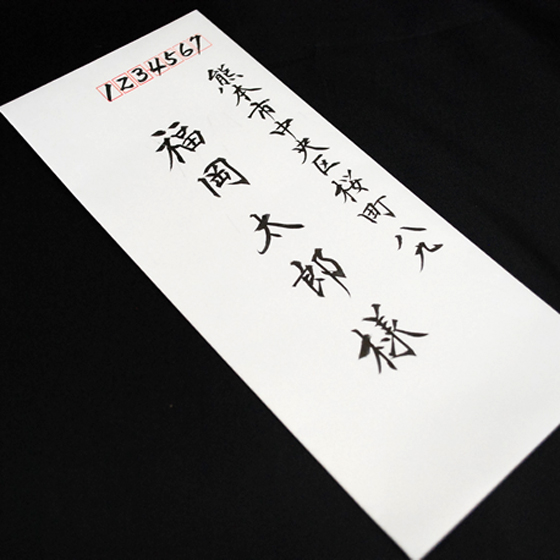 1234567
熊本市中央区桜町八九
福岡太郎様